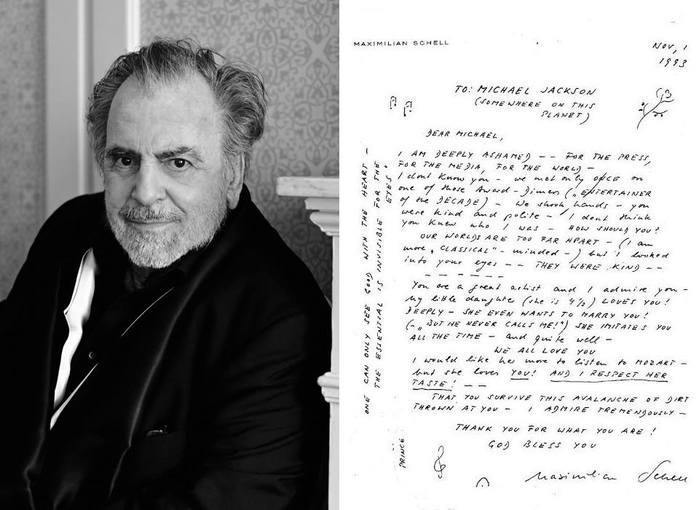 MAXIMILIAN SCHELL
NOV, 1
1993
TO: MICHAEL JACKSON
(SOMEWHERE ON THIS
PLANET)
DEAR MICHAEL,
I AM DEEPLY ASHAMED -- FOR THE PRESS,
FOR THE MEDIA, FOR THE WORLD -
I dont know you - we met only once on
one of those Award-Dinners („ENTERTAINER
of the DECADE) - We shook hands - you
were kind and polite - I dont think
you knew who I was - HOW SHOULD YOU?
OUR WORLDS ARE TOO FAR APART - (I am
more „CLASSICAL"- minded -) but I looked
into your eyes -- THEY WERE KIND --
You are a great artist and I admire you -
My little daughter (she is 4½) LOVES YOU!
DEEPLY - SHE EVEN WANTS TO MARRY YOU!
(-„BUT HE NEVER CALLS ME!") SHE IMITATES YOU
ALL THE TIME - and quite well -
WE ALL LOVE YOU
I would like her more to listen to MOZART -
but she loves YOU! AND I RESPECT HER
TASTE! --
THAT YOU SURVIVE THIS AVALANCHE OF DIRT
THROWN AT YOU - I ADMIRE TREMENDOUSLY -
THANK YOU FOR WHAT YOU ARE!
GOD BLESS YOU
Maximilian Schell
ONE CAN ONLY SEE GOOD WITH THE HEART -
THE ESSENTIAL IS INVISIBLE FOR THE
EYES"
PRINCE